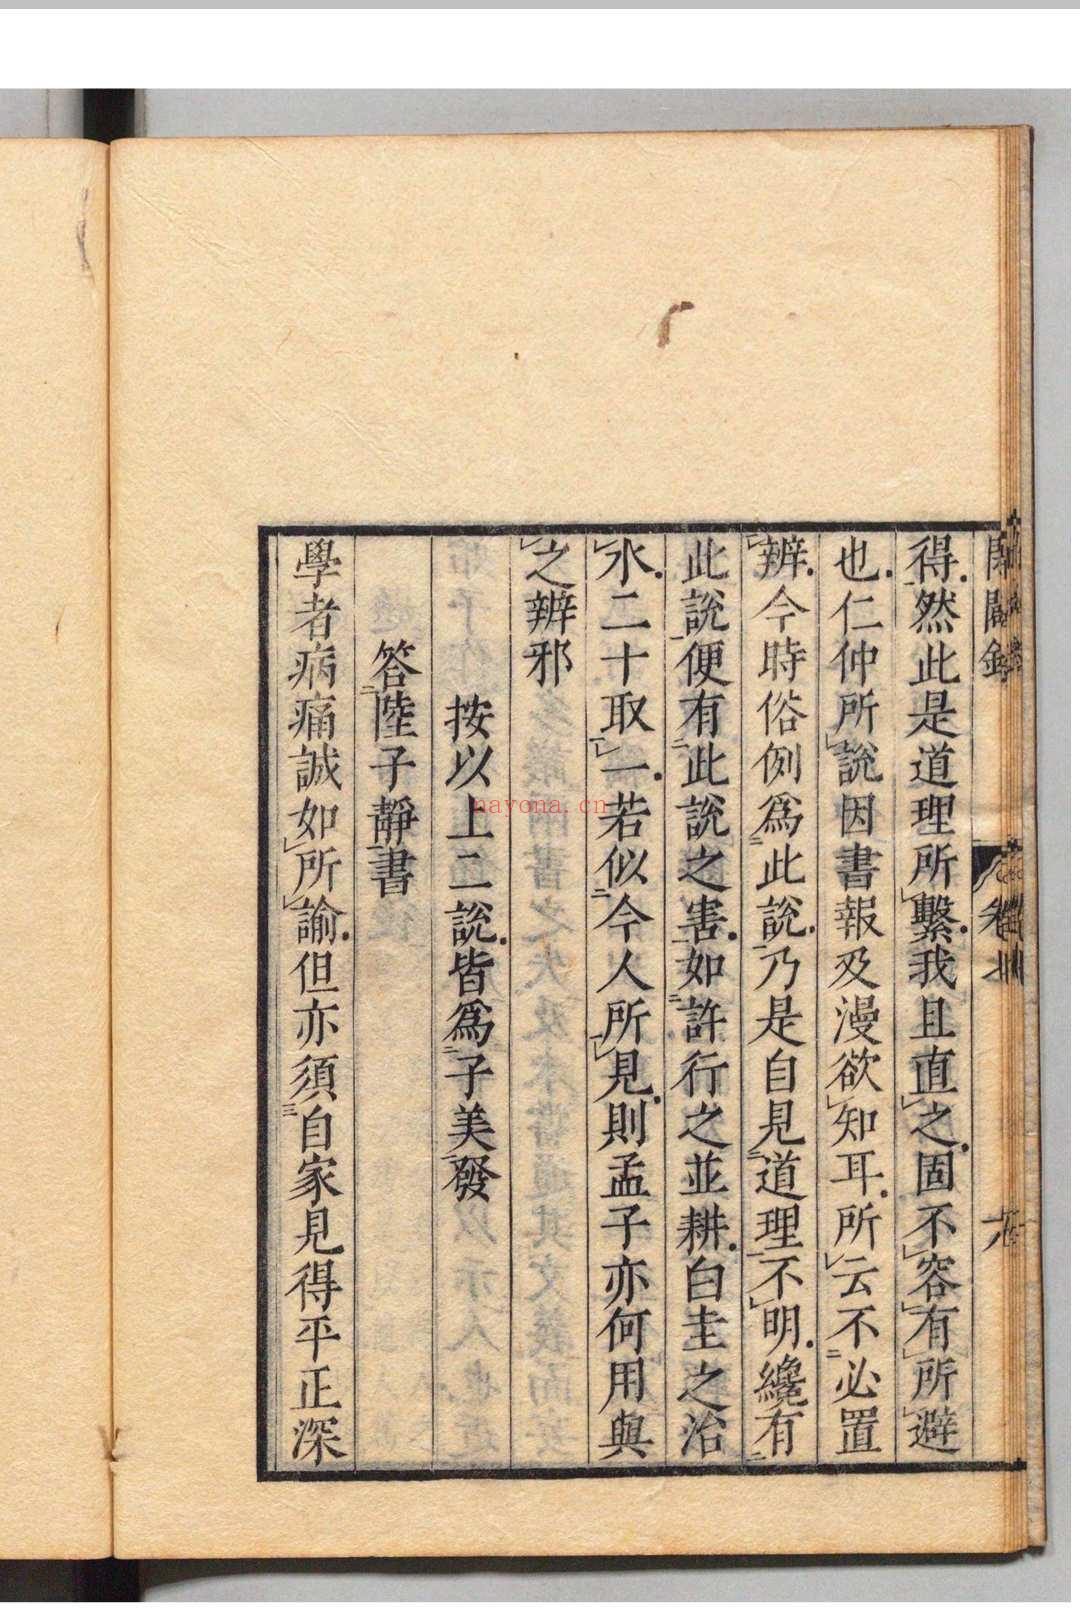 得然此是道理所繫我且直之固不容有所避
也仁仲所說因書報及漫欲知耳所云不必置
辨今時俗例爲此說乃是自見道理不明纔有
此說便有此說之害如許行之並耕白圭之治
水二十取一若似今人所見則孟子亦何用與
之辨邪
按以上二說皆爲子美發
答陸子靜書
學者病痛誠如所諭但亦須自家見得平正深
nayona.cn